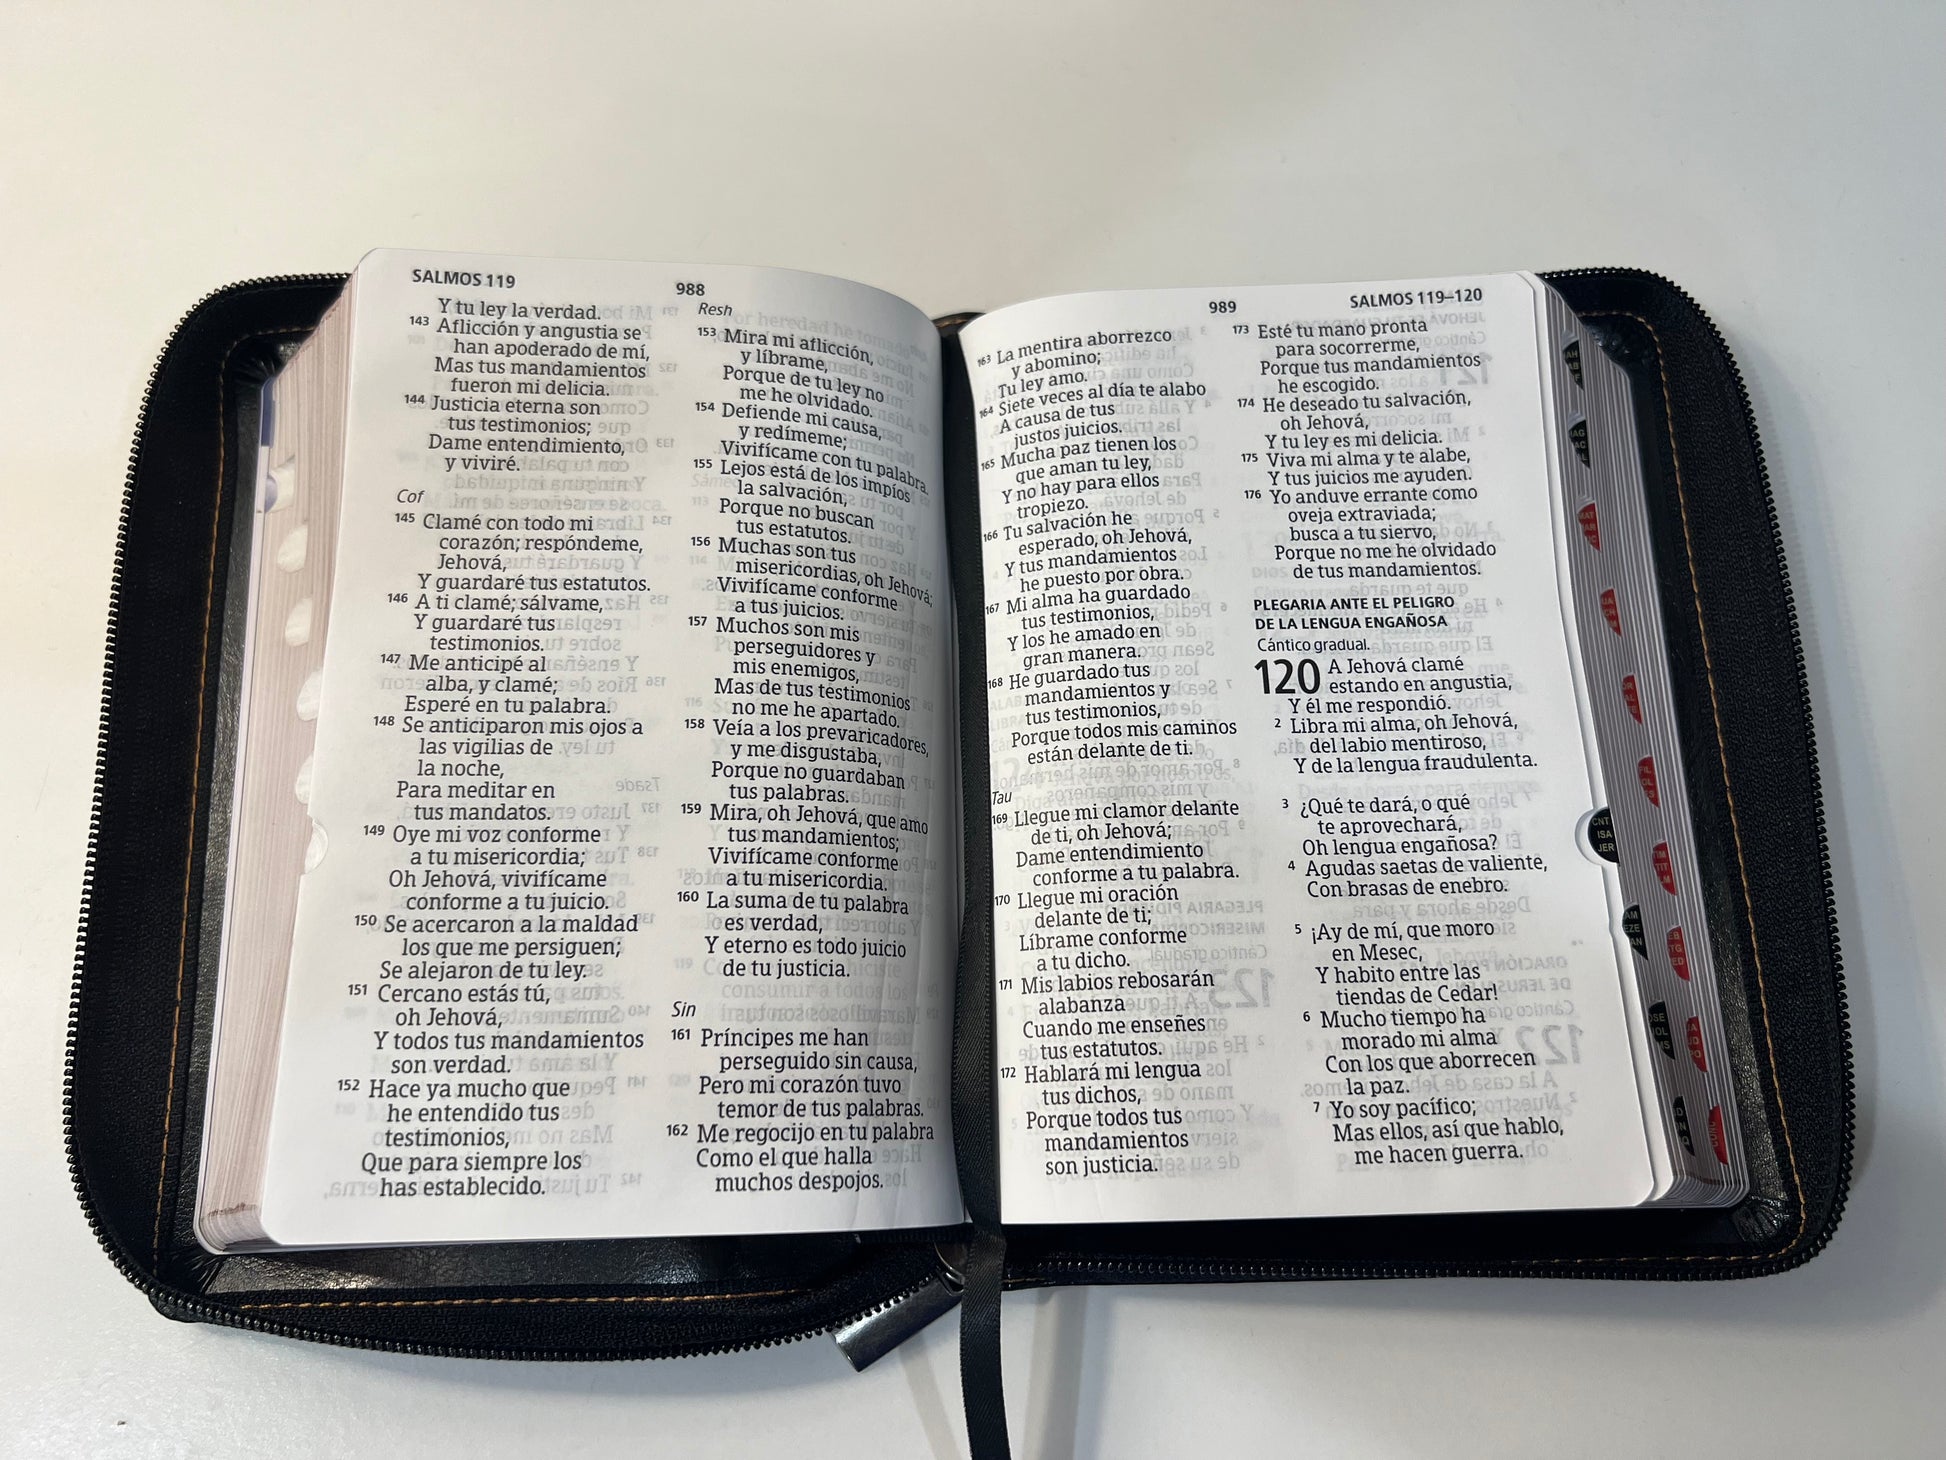 SALMOS 119
988
Y tu ley la verdad.
143 Aflicción y angustia se
han apoderado de mí,
Mas tus mandamientos
fueron mi delicia.
144 Justicia eterna son
tus testimonios;
Dame entendimiento,
y viviré.
Cof
145 Clamé con todo mi
corazón; respóndeme,
Jehová,
Y guardaré tus estatutos.
146 A ti clamé; sálvame,
Y guardaré tus
testimonios.
147 Me anticipé al
alba, y clamé;
Esperé en tu palabra.
148 Se anticiparon mis ojos a
las vigilias de
la noche,
Para meditar en
tus mandatos.
149 Oye mi voz conforme
a tu misericordia;
Oh Jehová, vivifícame
conforme a tu juicio.
150 Se acercaron a la maldad
los que me persiguen;
Se alejaron de tu ley.
151 Cercano estás tú,
oh Jehová,
Y todos tus mandamientos
son verdad.
152 Hace ya mucho que
he entendido tus
testimonios,
Que para siempre los
has establecido.
Resh
153 Mira mi aflicción,
y líbrame,
Porque de tu ley no
me he olvidado.
154 Defiende mi causa,
y redímeme;
Vivifícame con tu palabra.
155 Lejos está de los impíos
la salvación,
Porque no buscan
tus estatutos.
156 Muchas son tus
misericordias, oh Jehová;
Vivifícame conforme
a tus juicios.
157 Muchos son mis
perseguidores y
mis enemigos,
Mas de tus testimonios
no me he apartado.
158 Veía a los prevaricadores,
y me disgustaba,
Porque no guardaban
tus palabras.
159 Mira, oh Jehová, que amo
tus mandamientos;
Vivifícame conforme
a tu misericordia.
160 La suma de tu palabra
es verdad,
Y eterno es todo juicio
de tu justicia.
Sin
161 Príncipes me han
perseguido sin causa,
Pero mi corazón tuvo
temor de tus palabras.
162 Me regocijo en tu palabra
Como el que halla
muchos despojos.
989
SALMOS 119–120
163 La mentira aborrezco
y abomino;
Tu ley amo.
164 Siete veces al día te alabo
A causa de tus
justos juicios.
165 Mucha paz tienen los
que aman tu ley,
Y no hay para ellos
tropiezo.
166 Tu salvación he
esperado, oh Jehová,
Y tus mandamientos
he puesto por obra.
167 Mi alma ha guardado
tus testimonios,
Y los he amado en
gran manera.
168 He guardado tus
mandamientos y
tus testimonios,
Porque todos mis caminos
están delante de ti.
Tau
169 Llegue mi clamor delante
de ti, oh Jehová;
Dame entendimiento
conforme a tu palabra.
170 Llegue mi oración
delante de ti;
Líbrame conforme
a tu dicho.
171 Mis labios rebosarán
alabanza
Cuando me enseñes
tus estatutos.
172 Hablará mi lengua
tus dichos,
Porque todos tus
mandamientos
son justicia.
173 Esté tu mano pronta
para socorrerme,
Porque tus mandamientos
he escogido.
174 He deseado tu salvación,
oh Jehová,
Y tu ley es mi delicia.
175 Viva mi alma y te alabe,
Y tus juicios me ayuden.
176 Yo anduve errante como
oveja extraviada;
busca a tu siervo,
Porque no me he olvidado
de tus mandamientos.
PLEGARIA ANTE EL PELIGRO
DE LA LENGUA ENGAÑOSA
Cántico gradual.
120 A Jehová clamé
estando en angustia,
Y él me respondió.
2 Libra mi alma, oh Jehová,
del labio mentiroso,
Y de la lengua fraudulenta.
3 ¿Qué te dará, o qué
te aprovechará,
Oh lengua engañosa?
4 Agudas saetas de valiente,
Con brasas de enebro.
5 ¡Ay de mí, que moro
en Mesec,
Y habito entre las
tiendas de Cedar!
6 Mucho tiempo ha
morado mi alma
Con los que aborrecen
la paz.
7 Yo soy pacífico;
Mas ellos, así que hablo,
me hacen guerra.
CNT
ISA
JER